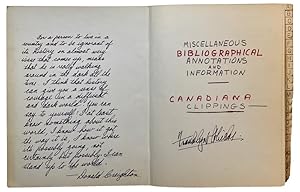 For a person to live in a
country and to be ignorant of
its history on almost every
issue that comes up, means
that he is really walking
around in the dark all the
time. I think that history
can give you a sense of
courage in a difficult
and dark world. You can
say to yourself "at least I
know something about this
world, I know how it got
the way it is, I know where
its possibly going, not
certainly but possibly I can
stand up to life world."
Donald Creighton
MISCELLANEOUS
BIBLIOGRAPHICAL
ANNOTATIONS
AND
INFORMATION
CANADIANA
CLIPPINGS